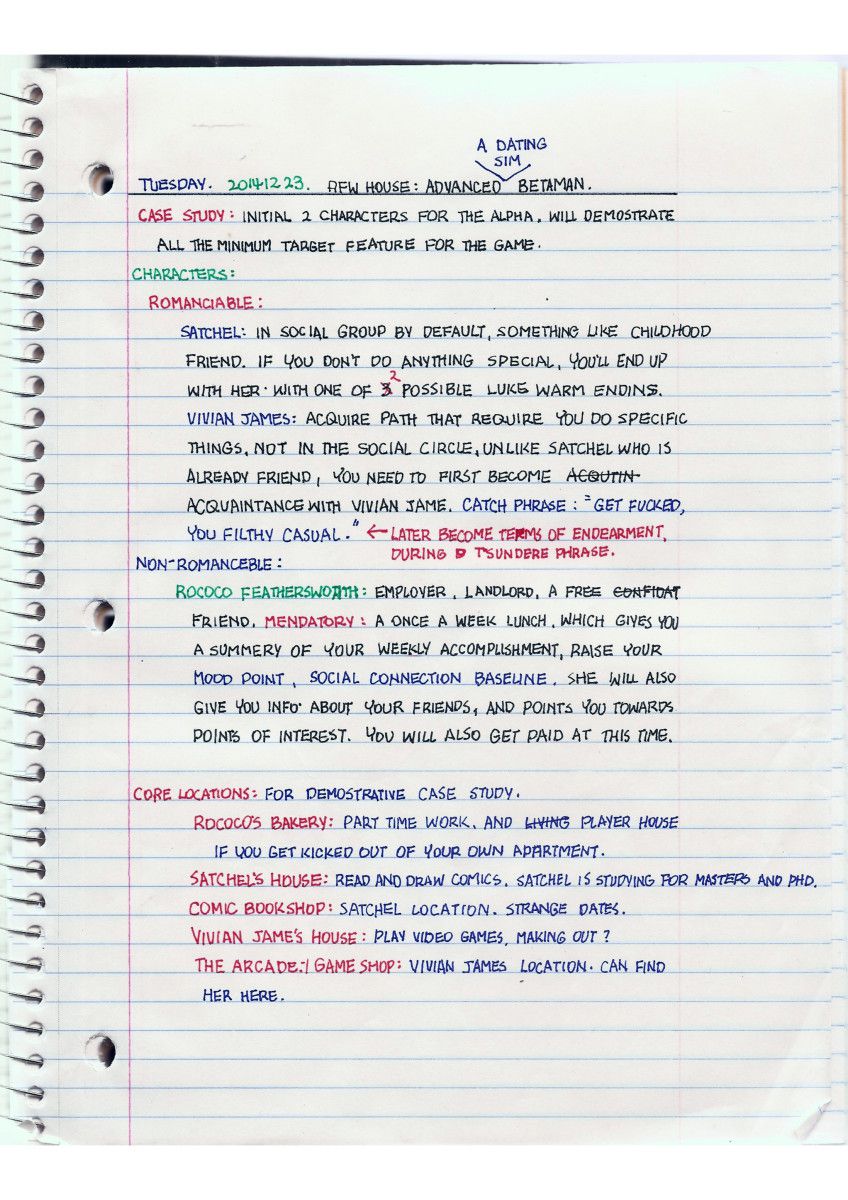 A DATING
SIM
TUESDAY. 20141223. RFW HOUSE: ADVANCED BETAMAN.
CASE STUDY: INITIAL 2 CHARACTERS FOR THE ALPHA. WILL DEMOSTRATE
ALL THE MINIMUM TARGET FEATURE FOR THE GAME.
CHARACTERS:
ROMANCIABLE:
SATCHEL: IN SOCIAL GROUP BY DEFAULT, SOMETHING LIKE CHILDHOOD
FRIEND. IF YOU DON'T DO ANYTHING SPECIAL, YOU'LL END UP
WITH HER. WITH ONE OF 3 2 POSSIBLE LUKE WARM ENDINS.
VIVIAN JAMES: ACQUIRE PATH THAT REQUIRE YOU DO SPECIFIC
THINGS, NOT IN THE SOCIAL CIRCLE, UNLIKE SATCHEL WHO IS
ALREADY FRIEND, YOU NEED TO FIRST BECOME ACQUTIN
ACQUAINTANCE WITH VIVIAN JAME. CATCH PHRASE: "GET FUCKED,
YOU FILTHY CASUAL." ← LATER BECOME TERMS OF ENDEARMENT,
DURING TSUNDERE PHRASE.
NON-ROMANCEBLE:
ROCOCO FEATHERSWORTH: EMPLOYER, LANDLORD, A FREE CONFIDAT
FRIEND. MENDATORY: A ONCE A WEEK LUNCH, WHICH GIVES YOU
A SUMMERY OF YOUR WEEKLY ACCOMPLISHMENT, RAISE YOUR
MOOD POINT, SOCIAL CONNECTION BASELINE. SHE WILL ALSO
GIVE YOU INFO. ABOUT YOUR FRIENDS, AND POINTS YOU TOWARDS
POINTS OF INTEREST. YOU WILL ALSO GET PAID AT THIS TIME.
CORE LOCATIONS: FOR DEMOSTRATIVE CASE STUDY.
ROCOCO'S BAKERY: PART TIME WORK. AND LIVING PLAYER HOUSE
IF YOU GET KICKED OUT OF YOUR OWN APARTMENT.
SATCHEL'S HOUSE: READ AND DRAW COMICS. SATCHEL IS STUDYING FOR MASTERS AND PHD.
COMIC BOOKSHOP: SATCHEL LOCATION. STRANGE DATES.
VIVIAN JAME'S HOUSE: PLAY VIDEO GAMES, MAKING OUT?
THE ARCADE./GAME SHOP: VIVIAN JAMES LOCATION. CAN FIND
HER HERE.